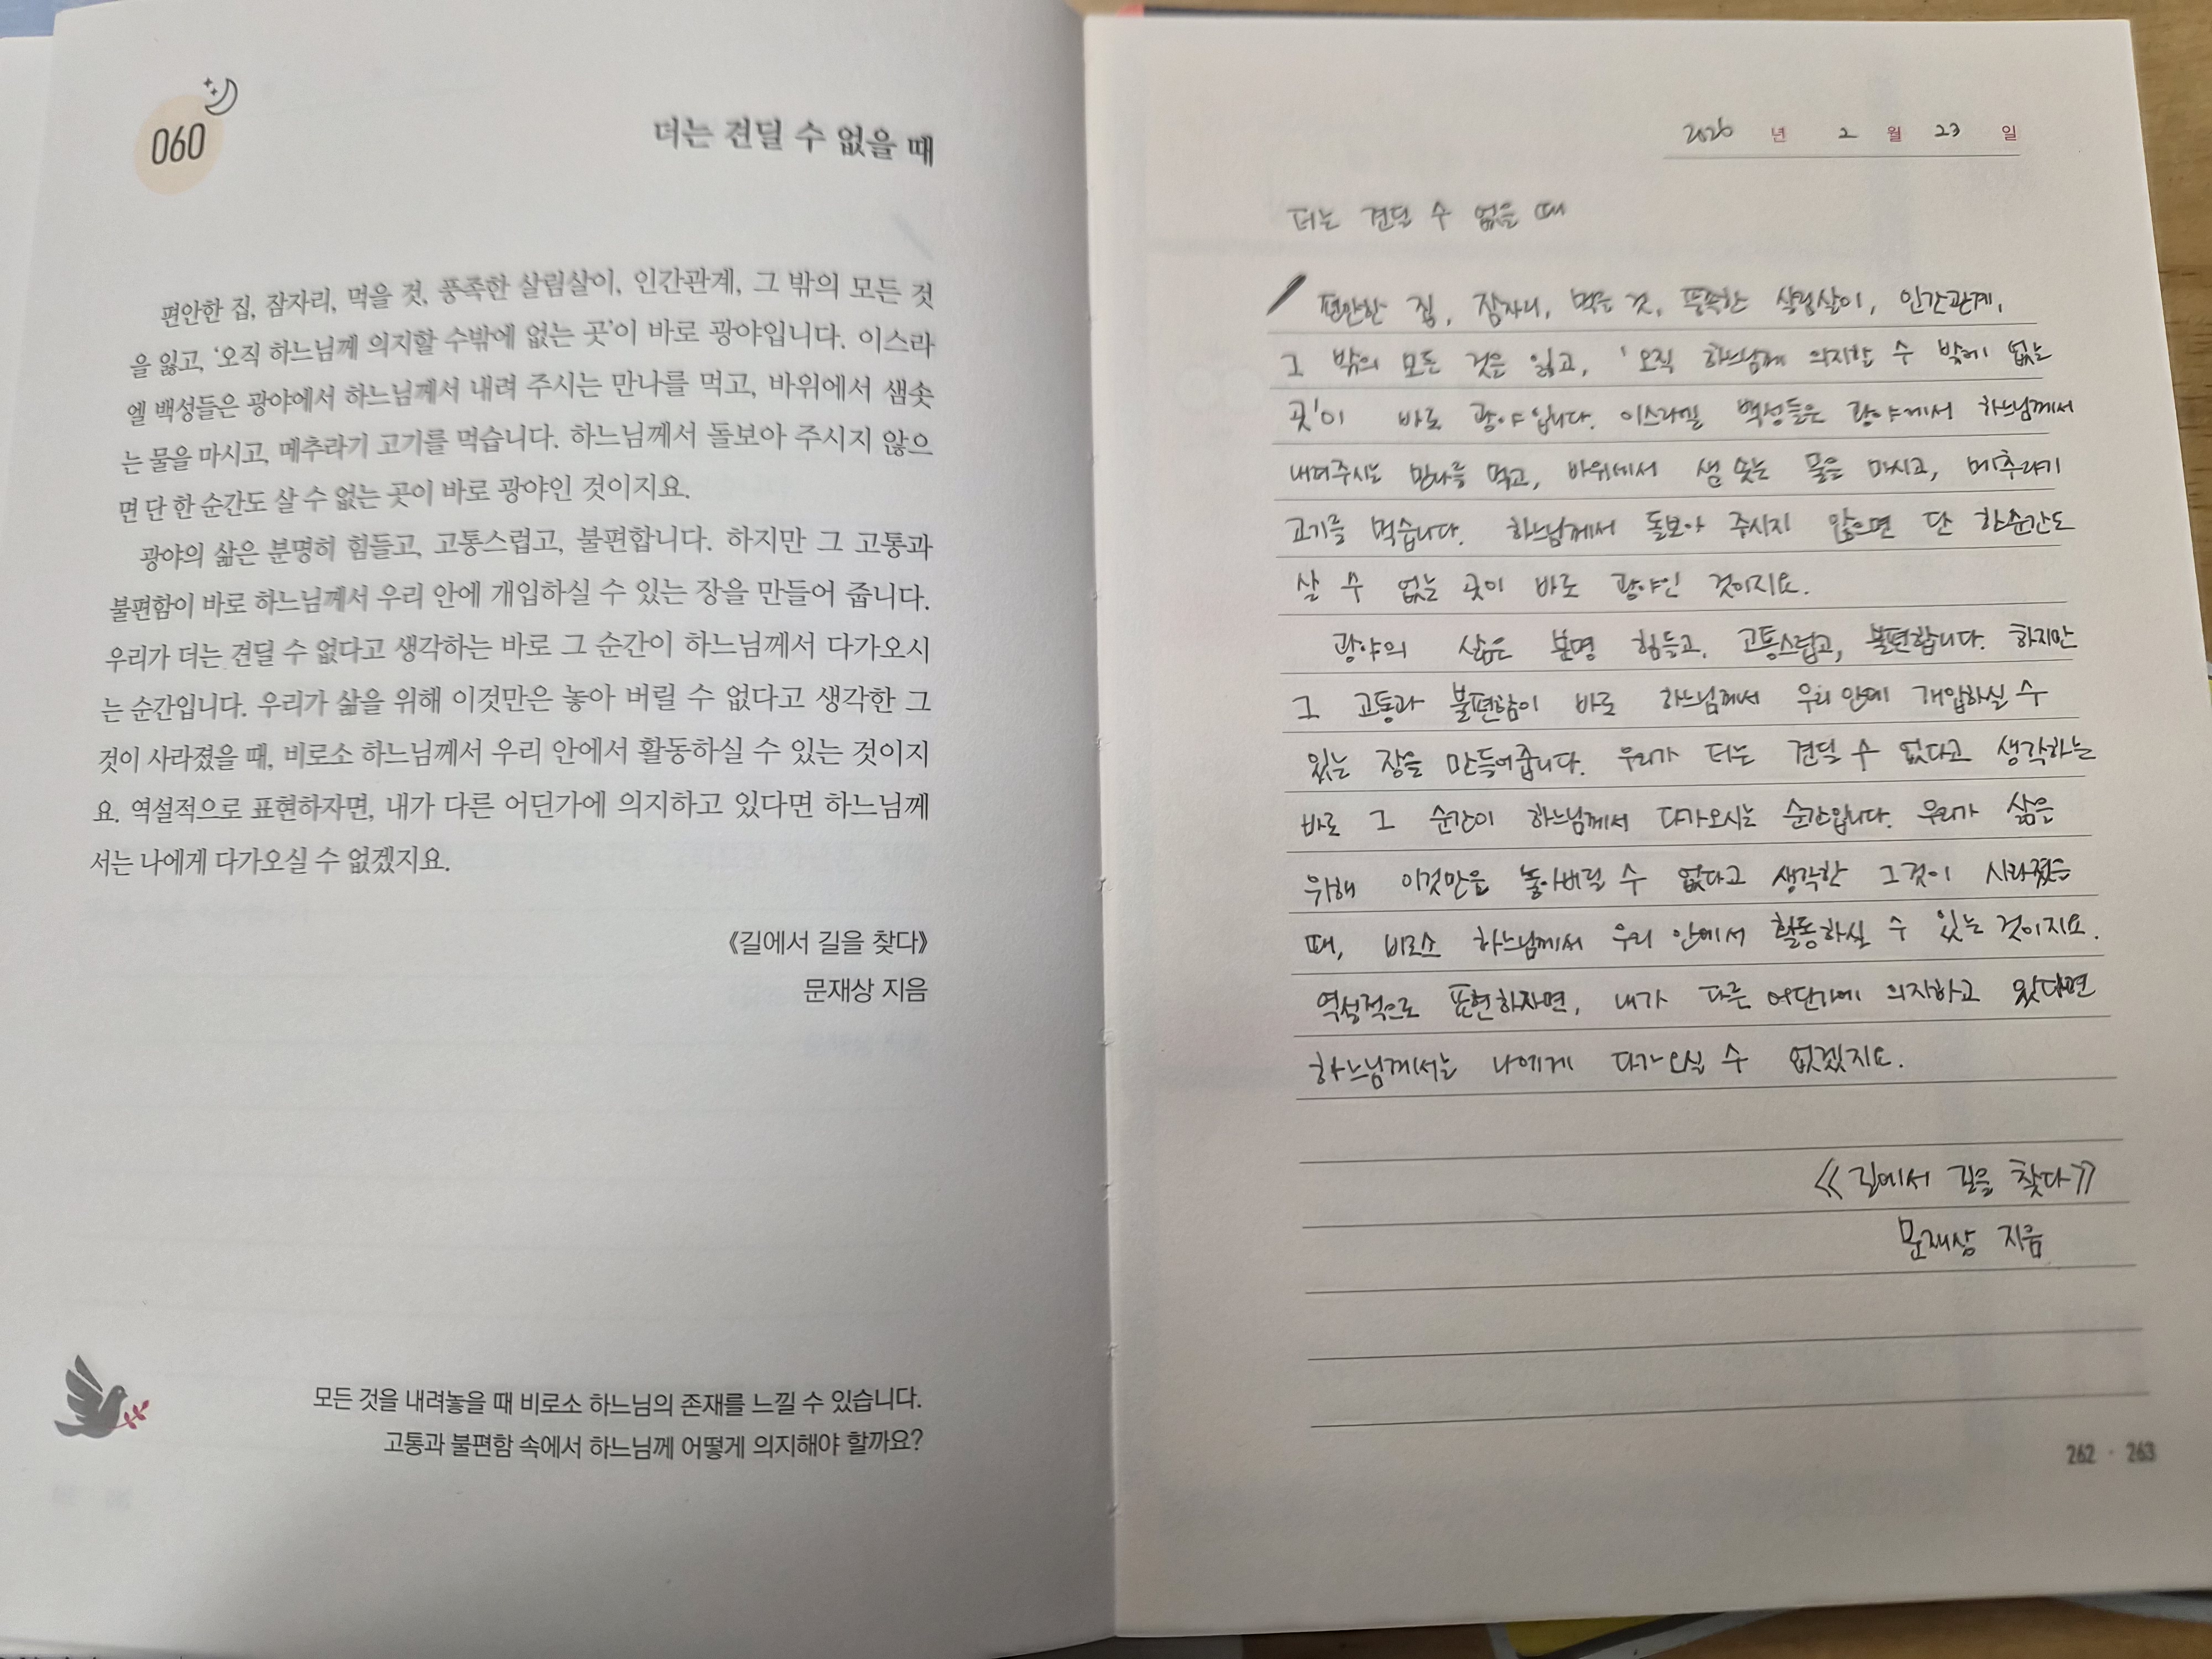 060
더는 견딜 수 없을 때
편안한 집, 잠자리, 먹을 것, 풍족한 살림살이, 인간관계, 그 밖의 모든 것
을 잃고, ‘오직 하느님께 의지할 수밖에 없는 곳’이 바로 광야입니다. 이스라
엘 백성들은 광야에서 하느님께서 내려 주시는 만나를 먹고, 바위에서 샘솟
는 물을 마시고, 메추라기 고기를 먹습니다. 하느님께서 돌보아 주시지 않으
면 단 한 순간도 살 수 없는 곳이 바로 광야인 것이지요.
광야의 삶은 분명히 힘들고, 고통스럽고, 불편합니다. 하지만 그 고통과
불편함이 바로 하느님께서 우리 안에 개입하실 수 있는 장을 만들어 줍니다.
우리가 더는 견딜 수 없다고 생각하는 바로 그 순간이 하느님께서 다가오시
는 순간입니다. 우리가 삶을 위해 이것만은 놓아 버릴 수 없다고 생각한 그
것이 사라졌을 때, 비로소 하느님께서 우리 안에서 활동하실 수 있는 것이지
요. 역설적으로 표현하자면, 내가 다른 어딘가에 의지하고 있다면 하느님께
서는 나에게 다가오실 수 없겠지요.
《길에서 길을 찾다》
문재상 지음
모든 것을 내려놓을 때 비로소 하느님의 존재를 느낄 수 있습니다.
고통과 불편함 속에서 하느님께 어떻게 의지해야 할까요?
2026 년 2 월 23 일
더는 견딜 수 없을 때
편안한 집, 잠자리, 먹을 것, 풍족한 살림살이, 인간관계,
그 밖의 모든 것을 잃고, ‘오직 하느님께 의지할 수 밖에 없는
곳’이 바로 광야입니다. 이스라엘 백성들은 광야에서 하느님께서
내려주시는 만나를 먹고, 바위에서 샘 솟는 물을 마시고, 메추라기
고기를 먹습니다. 하느님께서 돌보아 주시지 않으면 단 한순간도
살 수 없는 곳이 바로 광야인 것이지요.
광야의 삶은 분명 힘들고, 고통스럽고, 불편합니다. 하지만
그 고통과 불편함이 바로 하느님께서 우리 안에 개입하실 수
있는 장을 만들어줍니다. 우리가 더는 견딜 수 없다고 생각하는
바로 그 순간이 하느님께서 다가오시는 순간입니다. 우리가 삶을
위해 이것만은 놓아버릴 수 없다고 생각한 그것이 사라졌을
때, 비로소 하느님께서 우리 안에서 활동하실 수 있는 것이지요.
역설적으로 표현하자면, 내가 다른 어딘가에 의지하고 있다면
하느님께서는 나에게 다가오실 수 없겠지요.
《길에서 길을 찾다》
문재상 지음
262 · 263